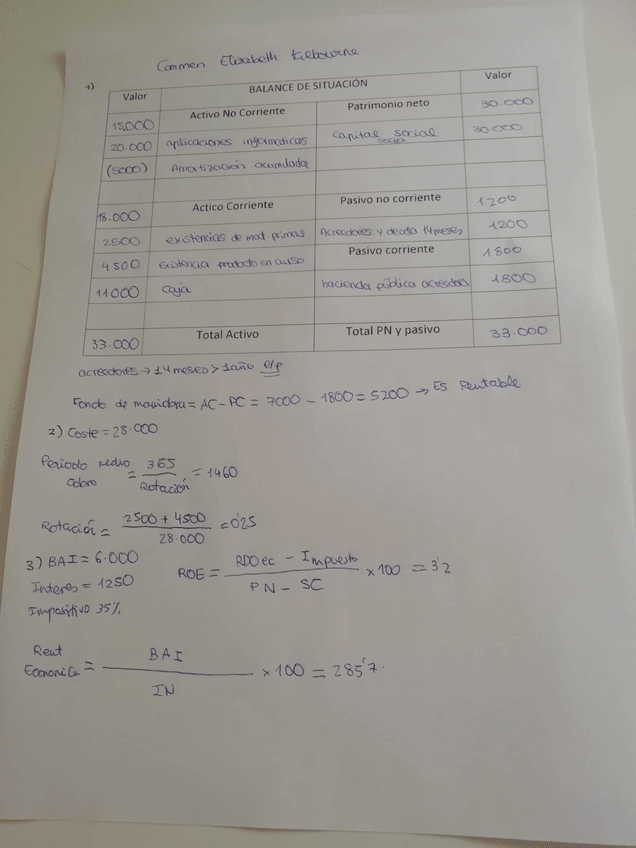 Carmen Elizabeth Kilbourne
1)
Valor BALANCE DE SITUACIÓN Valor
15,000 Activo No Corriente Patrimonio neto 30.000
20.000 aplicaciones informaticas capital social 30000
social
(5000) Amortización acumulada
18.000 Actico Corriente Pasivo no corriente 1200
2500 existencias de mat primas Acreedores y deuda 14 meses 1200
Pasivo corriente 1800
4500 existencia producto en curso
11000 caja hacienda pública acreedora 1800
33.000 Total Activo Total PN y pasivo 33.000
acreedores → 14 meses > 1 año
Fondo de maniobra = AC - PC = 7000 - 1800 = 5200 → Es Rentable
2) Coste = 28.000
Periodo medio cobro = 365 / Rotación = 1460
Rotación = 2500 + 4500 / 28.000 = 0'25
3) BAI = 6.000
Interes = 1250
Impositivo 35%
ROE = RDO ec - Impuesto / PN - SC × 100 = 3'2
Rent Economica = BAI / IN × 100 = 285'7.